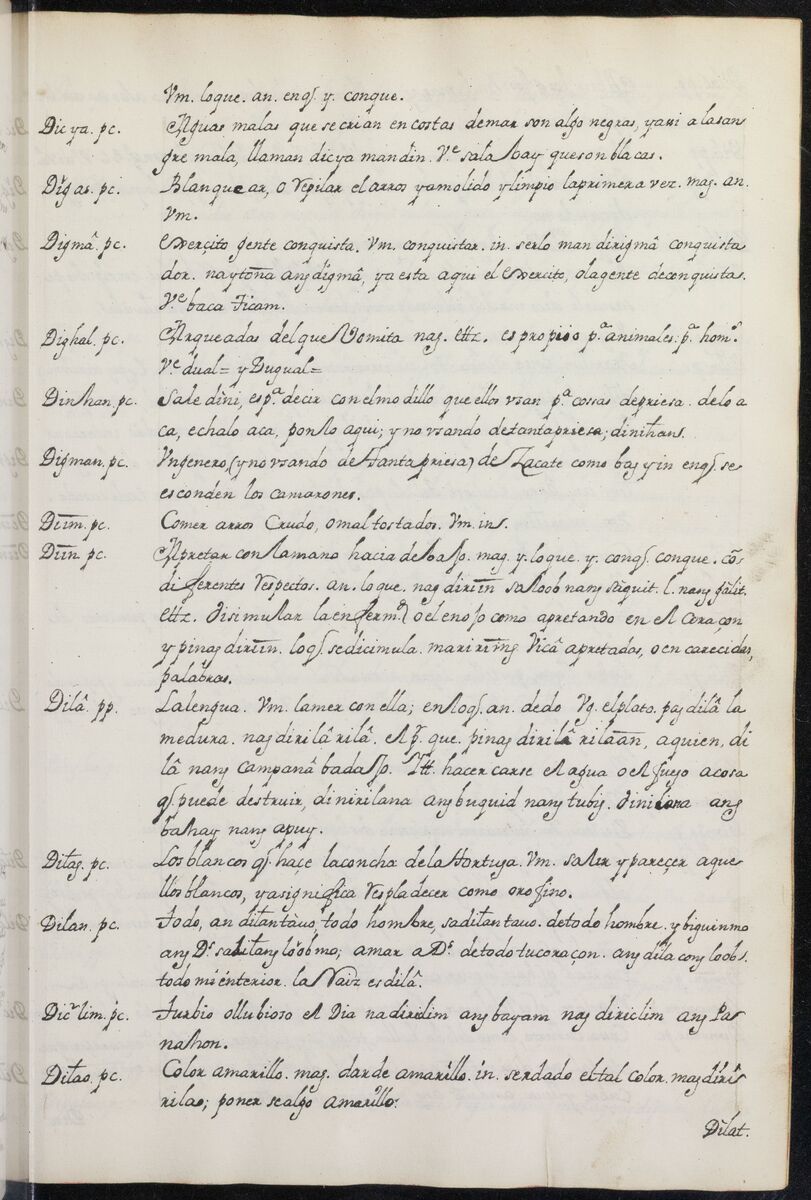 Vm. loque. an. enq̃. y. conque.
Dicya. pc. Aguas malas que se crian en costas de mar son algo negras, y ani a la san
gre mala, llaman dicya mandin. Ve. salabay que son blãcas.
Digas. pc. Blanquear, o repilar el arros ya molido y limpio la primera vez. mag. an.
Vm.
Digmâ. pc. Exerçito gente conquista. Vm. conquistar. in. serlo mandirigmâ conquista
dor. naytona ang digmâ, ya esta aqui el Exercito, o la gente de conquistas.
Ve. baca
Dighal. pc. Arqueadas del que Vomita nag. ettz. es propio pa. animales: pa. homs.
Ve. dual= y Dugual=
Dinhan. pc. Sale dini, es pa. decir con el modillo que ellos vsan pa. cossas de priesa. delo a
ca, echalo aca, ponlo aqui; y no vsando de tanta priesa; dinihan.
Digman. pc. Vn genero, (y no vsando de tanta priesa) de Zacate como bay yin enq̃. se
esconden los camarones.
Diim. pc. Comer arros Crudo, o mal tostados. Vm. ins.
Diin. pc. Apretar con la mano hacia debaxo. mag. y. loque. y. conq̃. conque. cõs
diferentes respectos. an. loque. nag diriin sa loob nang sãquit. l. nang galit.
ettz. disimular la enfermd. o el enojo como apretando en el coraçon
y pinag diriin. loq̃. se dicimula. maririing Vicâ apretadas, o encarecidas,
palabras.
Dilâ. pp. La lengua. Vm. lamer con ella; en loq̃. an. dedo Vg. el plato. pag dilâ la
medura. nag dirilâ rilâ. el p. que. pinag dirilâ rilaan, a quien, di
lâ nang campanâ badajo. Itt. hacercarse el agua o el fuego a cosa
q̃. puede destruir, dinirilana ang buquid nang tubig. dinirilana ang
bahay nang apuy.
Dilag. pc. Los blancos q̃. haçe la concha de la tortuga. Vm. salir y pareçer aque
llos blancos, y a significa resplãdecer como oro fino.
Dilan. pc. Todo, an dilan tavo, todo hombre, sa dilan tavo. de todo hombre. ybiguinmo
ang Ds. sa dilang loobmo; amar a Ds. de todo tu coraçon. ang dila cong loobs.
todo mi interior. la raiz es dilâ.
Diclim. pc. Turbio o llubioso el Dia nadiridim ang bayam nag diriclim ang Pa
nahon.
Dilao. pc. Color amarillo. mag. dar de amarillo. in. ser dado el tal color. mag diri
rilao; ponerse algo amarillo:
Dilat.